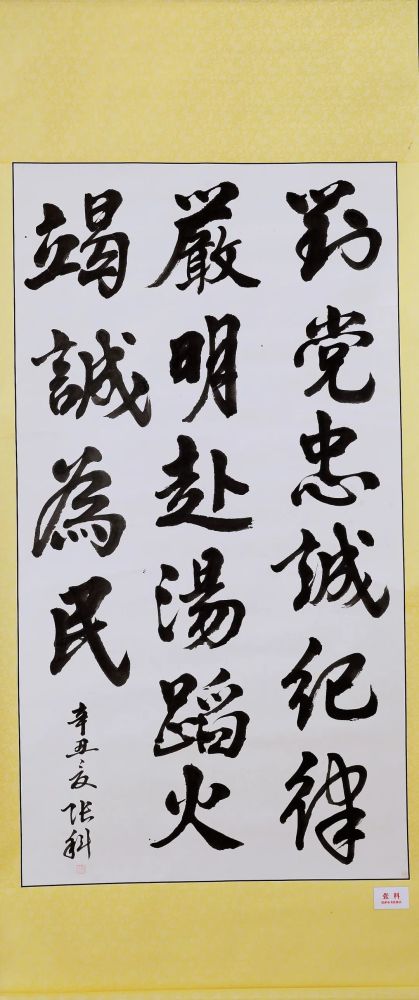 對党忠誠紀律
嚴明赴湯蹈火
竭誠為民
辛丑夏张科
张科